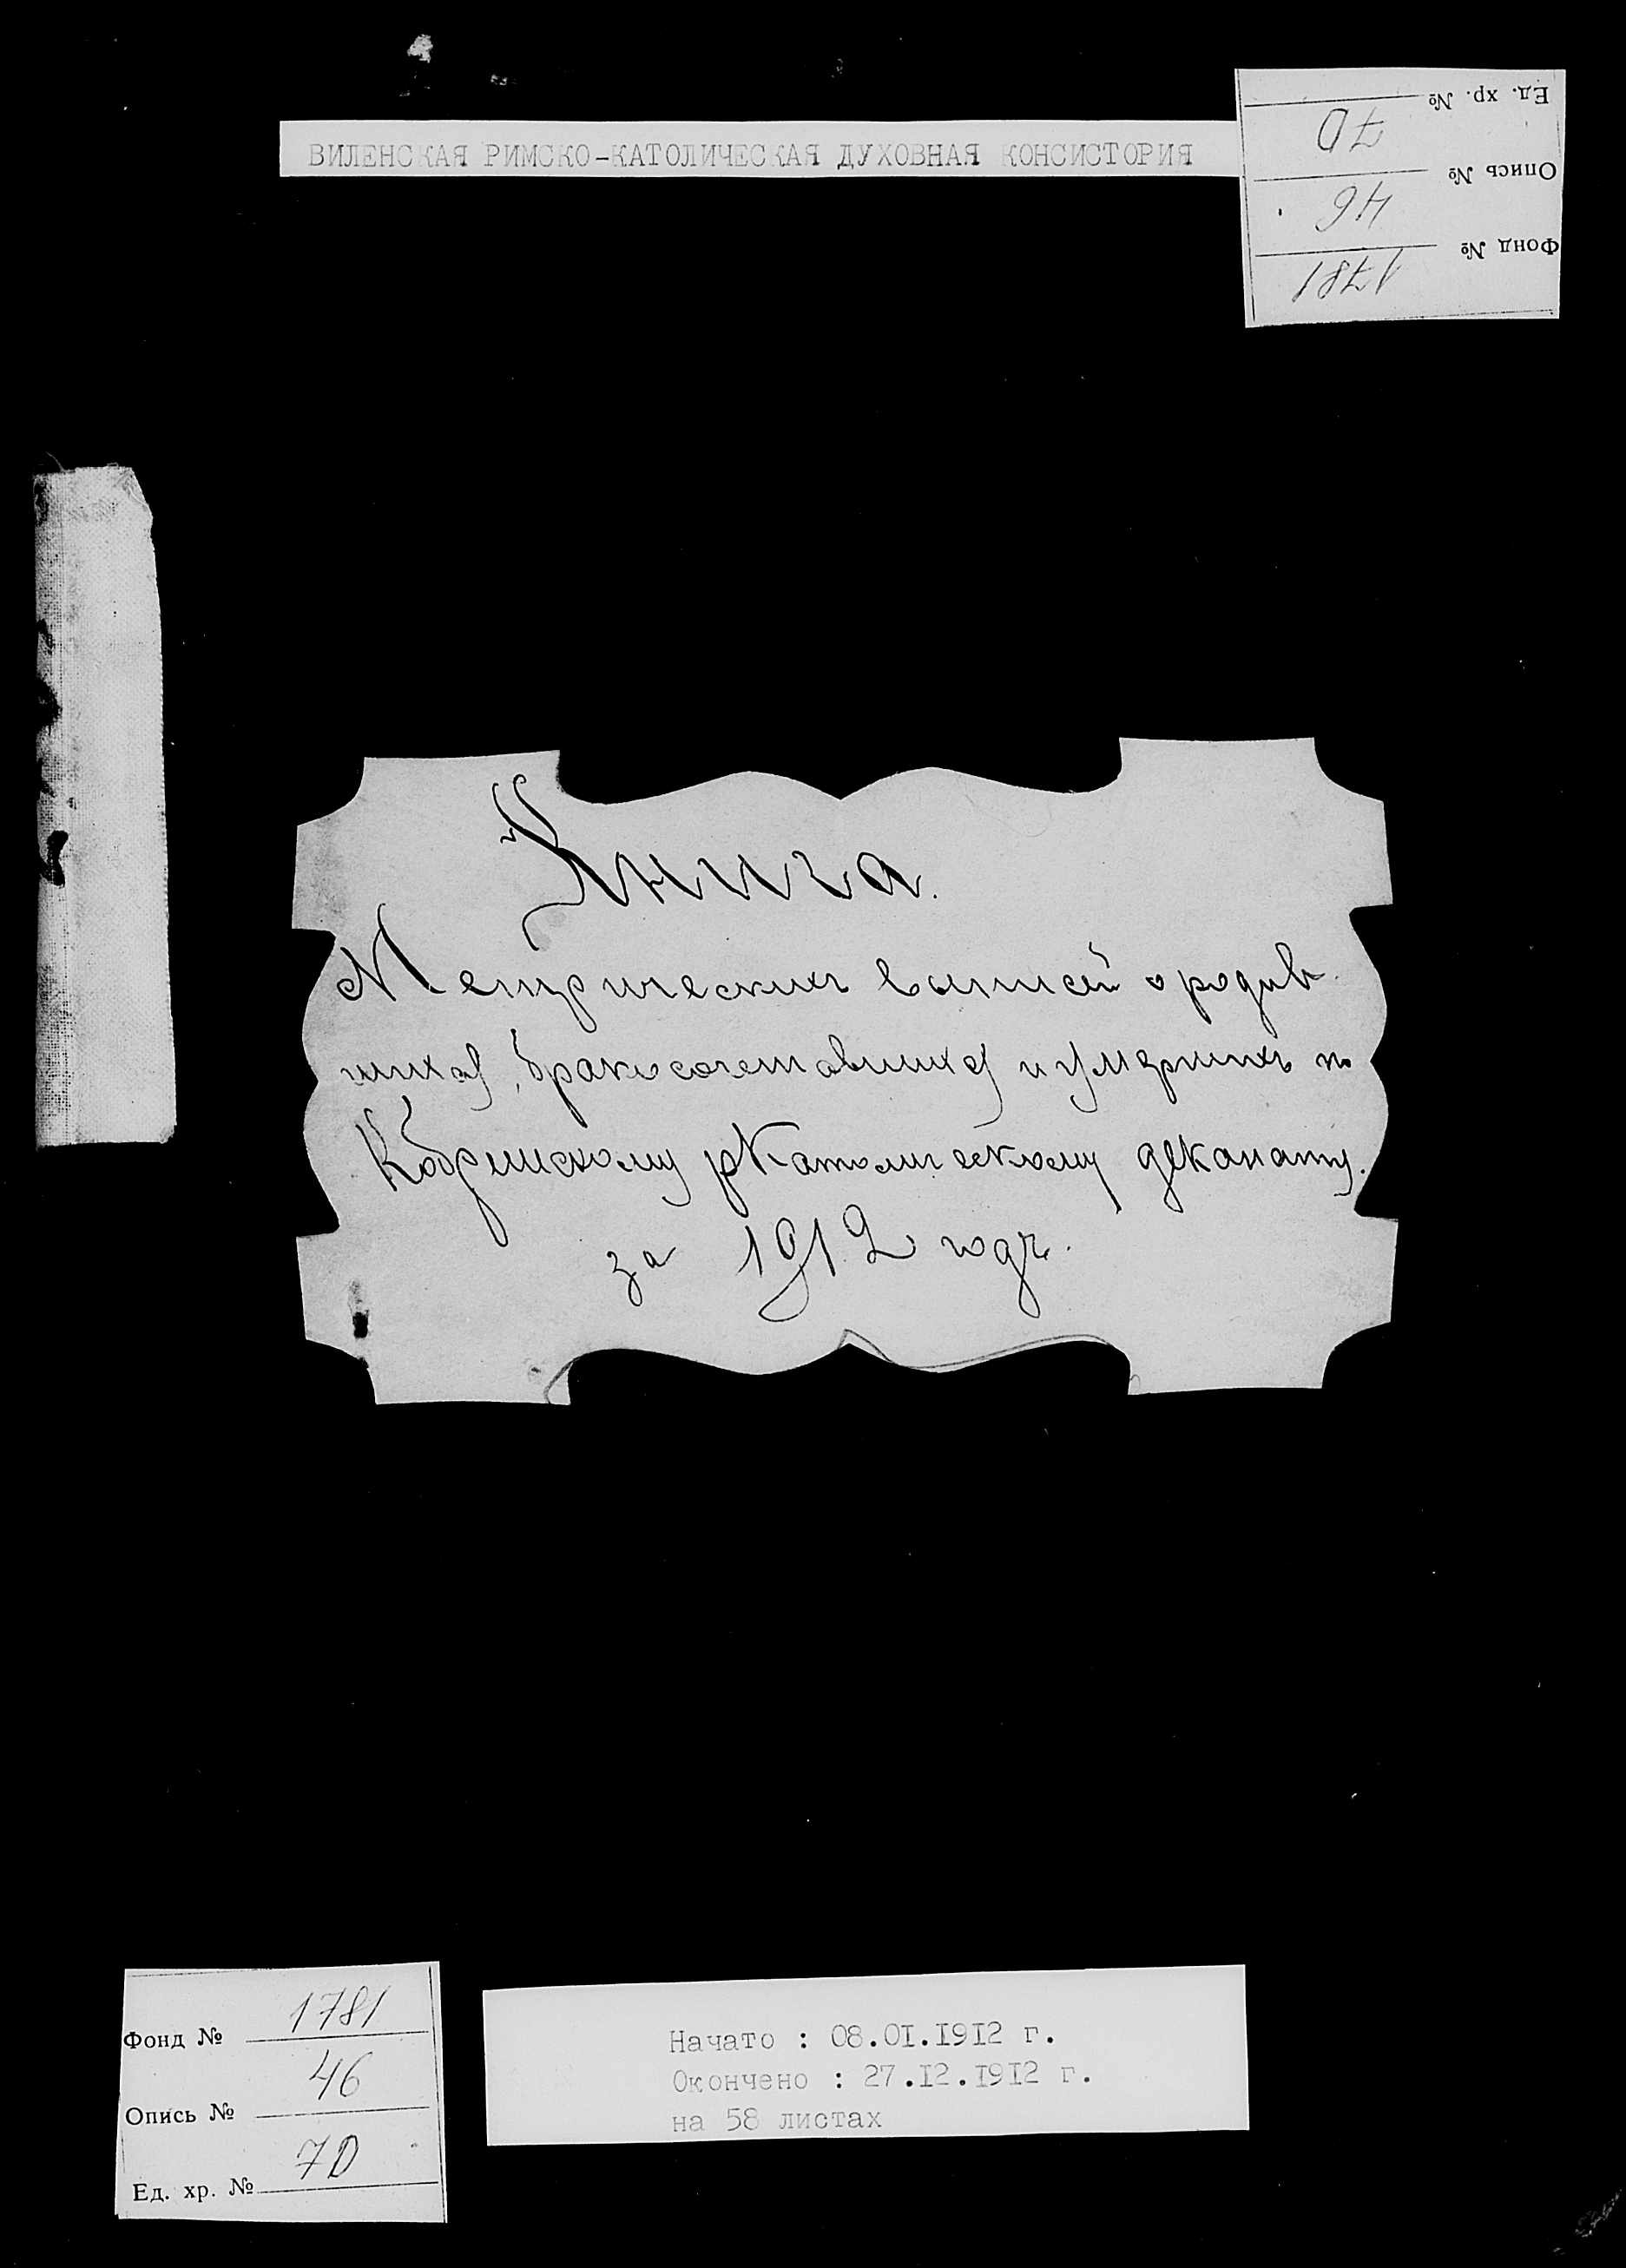 ВИЛЕНСКАЯ РИМСКО-КАТОЛИЧЕСКАЯ ДУХОВНАЯ КОНСИСТОРИЯ
Фонд № 1781
Опись № 46
Ед. хр. № 70
Книга.
Метрическихъ выписей о родив-
шихся, бракосочетавшихся и умершихъ по
Кобринскому рКатолическому деканату.
за 1912 годъ.
Фонд № 1781
Опись № 46
Ед. хр. № 70
Начато : 08.01.1912 г.
Окончено : 27.12.1912 г.
на 58 листах